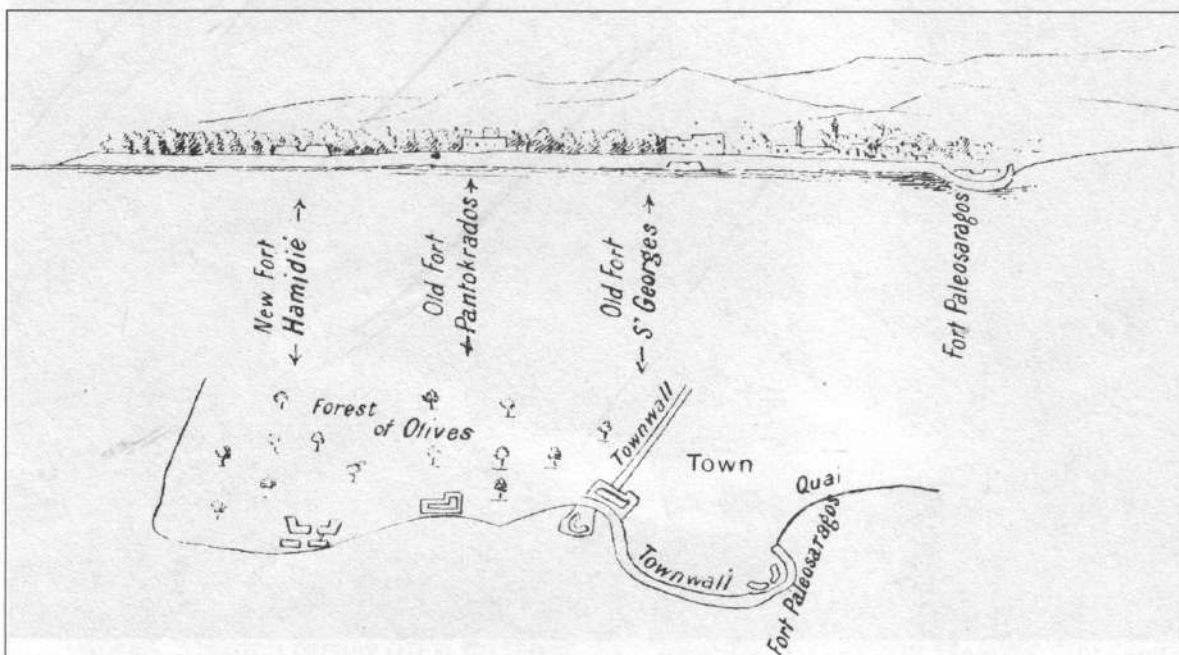 New Fort
Hamidié
Old Fort
Pantokrados
Old Fort
S' Georges
Fort Paleosaragos
Forest
of Olives
Townwall
Town
Quai
Townwall
Fort Paleosaragos